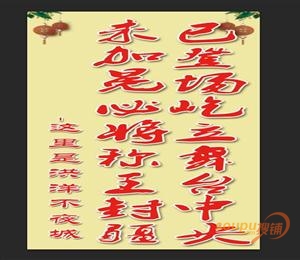 已登场屹立舞台中央
未加冕必将称王封疆
这里是洪洋不夜城